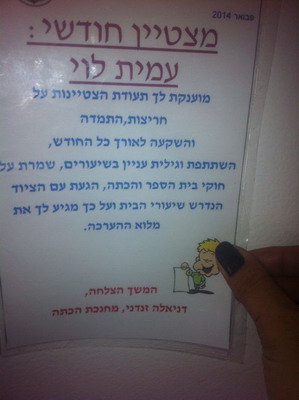 פבואר 2014
מצטיין חודשי:
עמית לוי
מוענקת לך תעודת הצטיינות על
חריצות,התמדה
והשקעה לאורך כל החודש,
השתתפת וגילית עניין בשיעורים, שמרת על
חוקי בית הספר והכתה, הגעת עם הציוד
הנדרש שיעורי הבית ועל כך מגיע לך את
מלוא ההערכה.
המשך הצלחה,
דניאלה זנדני, מחנכת הכתה